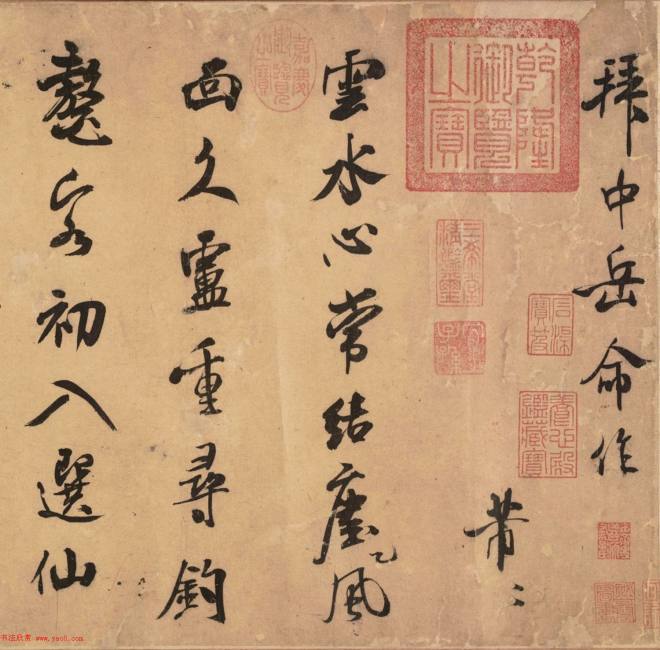 拜中岳命作
芾〻
雲水心常結塵風
面久盧重尋釣
鰲客初入選仙
乾隆御覽之寶
三希堂精鑑璽
宜子孫
石渠寶笈
養心殿鑑藏寶
嘉慶御覽之寶
书法欣赏 www.yac8.com